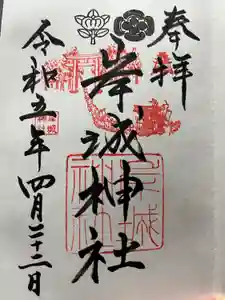 奉拝
岸城神社
令和五年四月二十二日